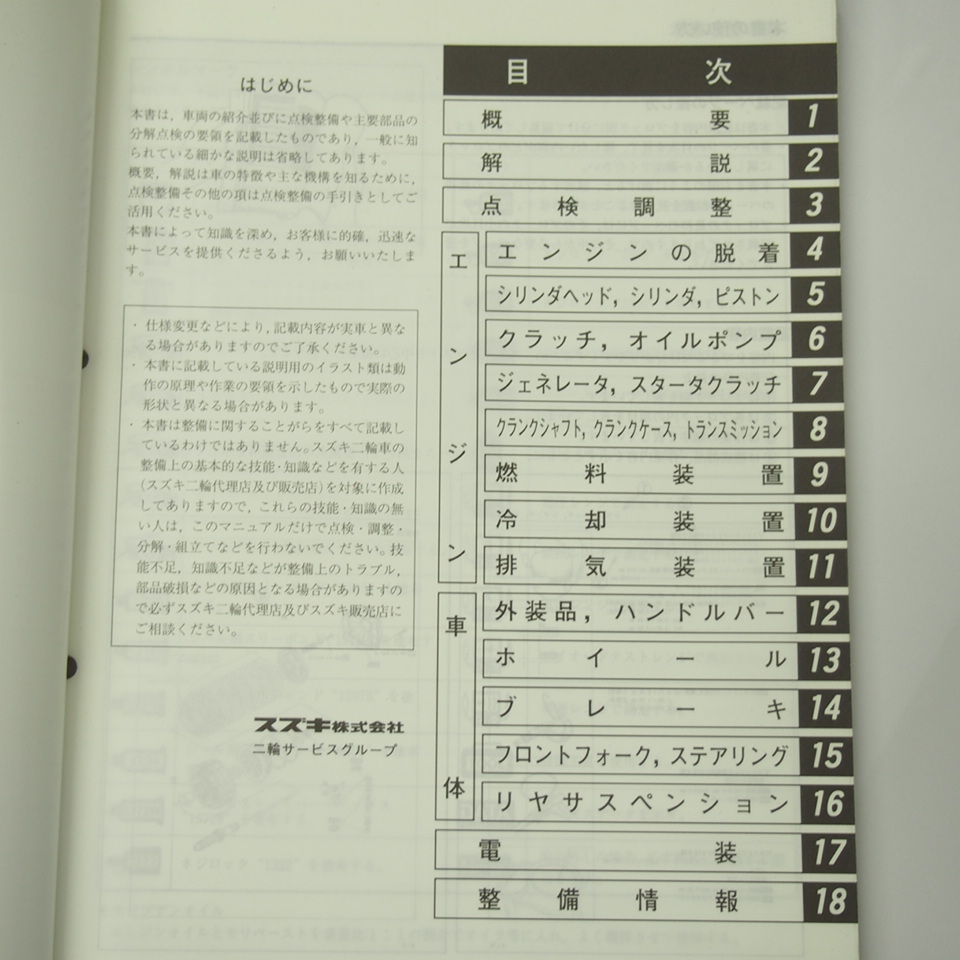 はじめに
本書は，車両の紹介並びに点検整備や主要部品の
分解点検の要領を記載したものであり，一般に知
られている細かな説明は省略してあります。
概要，解説は車の特徴や主な機構を知るために，
点検整備その他の項は点検整備の手引きとしてご
活用ください。
本書によって知識を深め，お客様に的確，迅速な
サービスを提供くださるよう，お願いいたしま
す。
・仕様変更などにより，記載内容が実車と異な
る場合がありますのでご了承ください。
・本書に記載している説明用のイラスト類は動
作の原理や作業の要領を示したもので実際の
形状と異なる場合があります。
・本書は整備に関することがらをすべて記載し
ているわけではありません。スズキ二輪車の
整備上の基本的な技能・知識などを有する人
（スズキ二輪代理店及び販売店）を対象に作成
してありますので，これらの技能・知識の無
い人は，このマニュアルだけで点検・調整・
分解・組立てなどを行わないでください。技
能不足，知識不足などが整備上のトラブル，
部品破損などの原因となる場合がありますの
で必ずスズキ二輪代理店及びスズキ販売店に
ご相談ください。
スズキ株式会社
二輪サービスグループ
目次
概要 1
解説 2
点検調整 3
エンジン
エンジンの脱着 4
シリンダヘッド，シリンダ，ピストン 5
クラッチ，オイルポンプ 6
ジェネレータ，スタータクラッチ 7
クランクシャフト，クランクケース，トランスミッション 8
燃料装置 9
冷却装置 10
排気装置 11
車体
外装品，ハンドルバー 12
ホイール 13
ブレーキ 14
フロントフォーク，ステアリング 15
リヤサスペンション 16
電装 17
整備情報 18